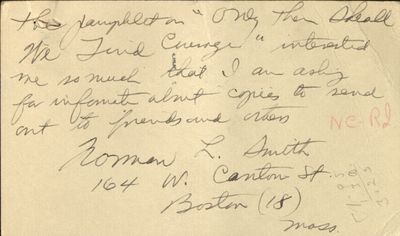 This pamphlet on "Only Then Shall
We Find Courage" interested
me so much that I am askg
for informatn about copies to send
out to friends and others
NC-Rd
Norman L. Smith
164 W. Canton St.
Boston (18)
Mass.